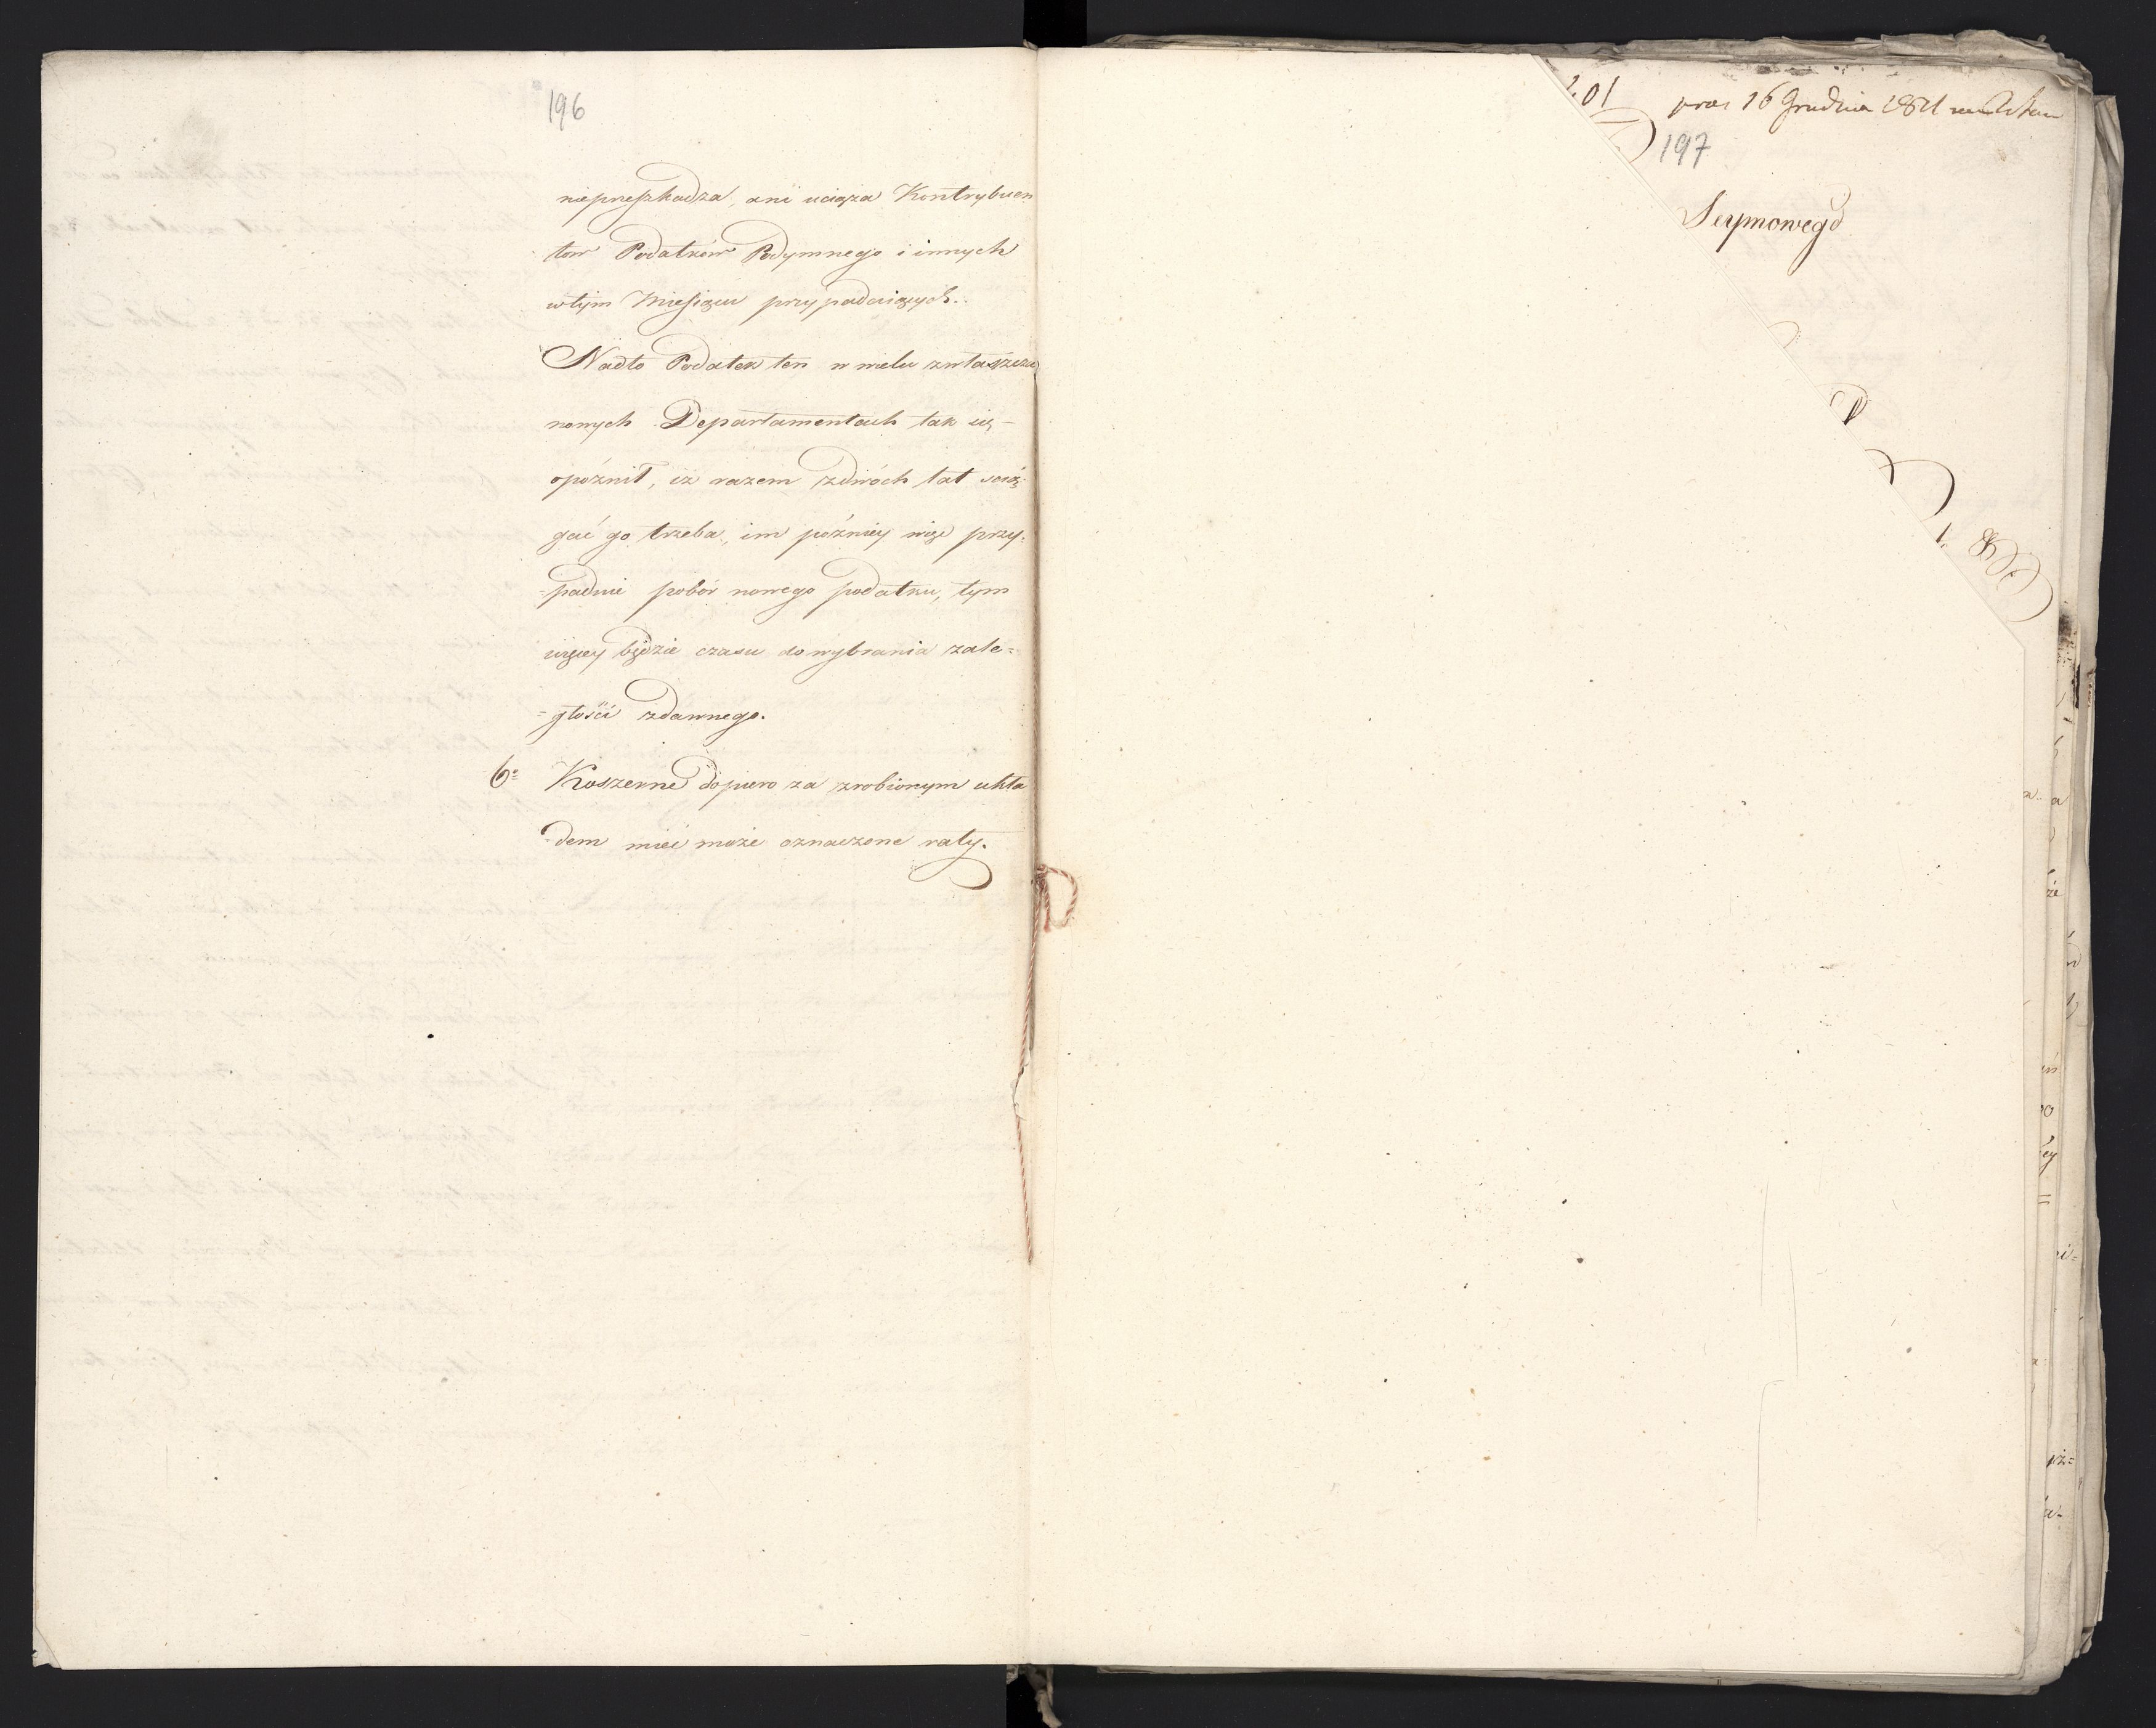 196
nieprzeszkadza, ani uciąża Kontrybuen
tow Podatków Podymnego i innych
wtym Miesiącu przypadaiących.
Nadto Podatek ten w wielu zwłaszcza
nowych Departamentach tak się
opóźnił, iż razem zdwóch lat ścią=
gać go trzeba, im późniey więc przy=
=padnie pobór nowego podatku, tym
więcey będzie czasu do wybrania zale=
=głości zdawnego.
6o Koszerne dopiero za zrobionym ukła
dem mieć może oznaczone raty.
201
16 Grudnia 1811
197
Seymowego